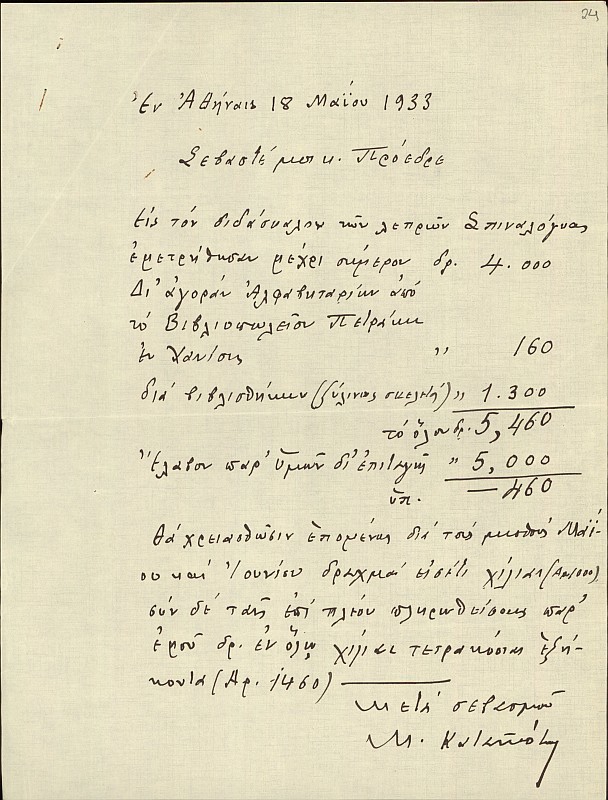 24
Ἐν Ἀθήναις 18 Μαΐου 1933
Σεβαστέ μοι κ. Πρόεδρε
Εἰς τόν διδάσκαλον τῶν λεπρῶν Σπιναλόγγας
ἐμετρήθησαν μέχρι σήμερον δρ. 4.000
Δι' ἀγοράν Ἀλφαβηταρίων ἀπό
τό Βιβλιοπωλεῖον Πετράκη
ἐν Χανίοις " 160
διά βιβλιοθήκην (ξύλινος σκελετός) " 1.300
τό ὅλον δρ. 5,460
Ἔλαβον παρ' ὑμῶν δι' ἐπιταγῆς " 5,000
ὑπ. — 460
Θά χρειασθῶσιν ἑπομένως διά τούς μισθούς Μαΐ-
ου καί Ἰουνίου δραχμαί εἰσέτι χίλιαι (Αρ 1000)
σύν δέ ταῖς ἐπί πλέον πληρωθείσαις παρ'
ἐμοῦ δρ. ἐν ὅλῳ χίλιαι τετρακόσιαι ἑξή-
κοντα (Αρ. 1460)
Μετά σεβασμοῦ
Μ. Καταπότης